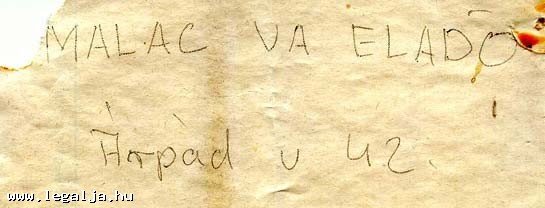 MALAC VA ELADÓ
Árpàd u 42.
www.legalja.hu